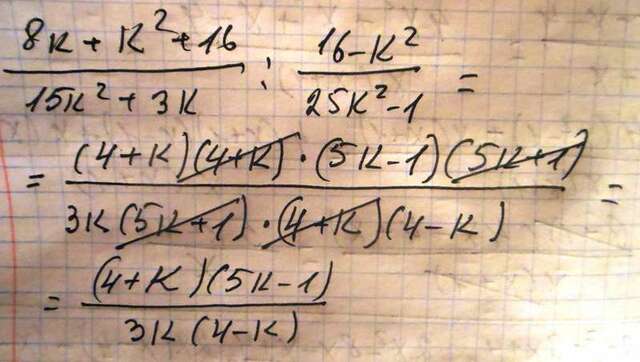 8k + k² + 16 / 15k² + 3k : 16 - k² / 25k² - 1 =
= (4+k)(4+k)·(5k-1)(5k+1) / 3k(5k+1)·(4+k)(4-k) =
= (4+k)(5k-1) / 3k(4-k)